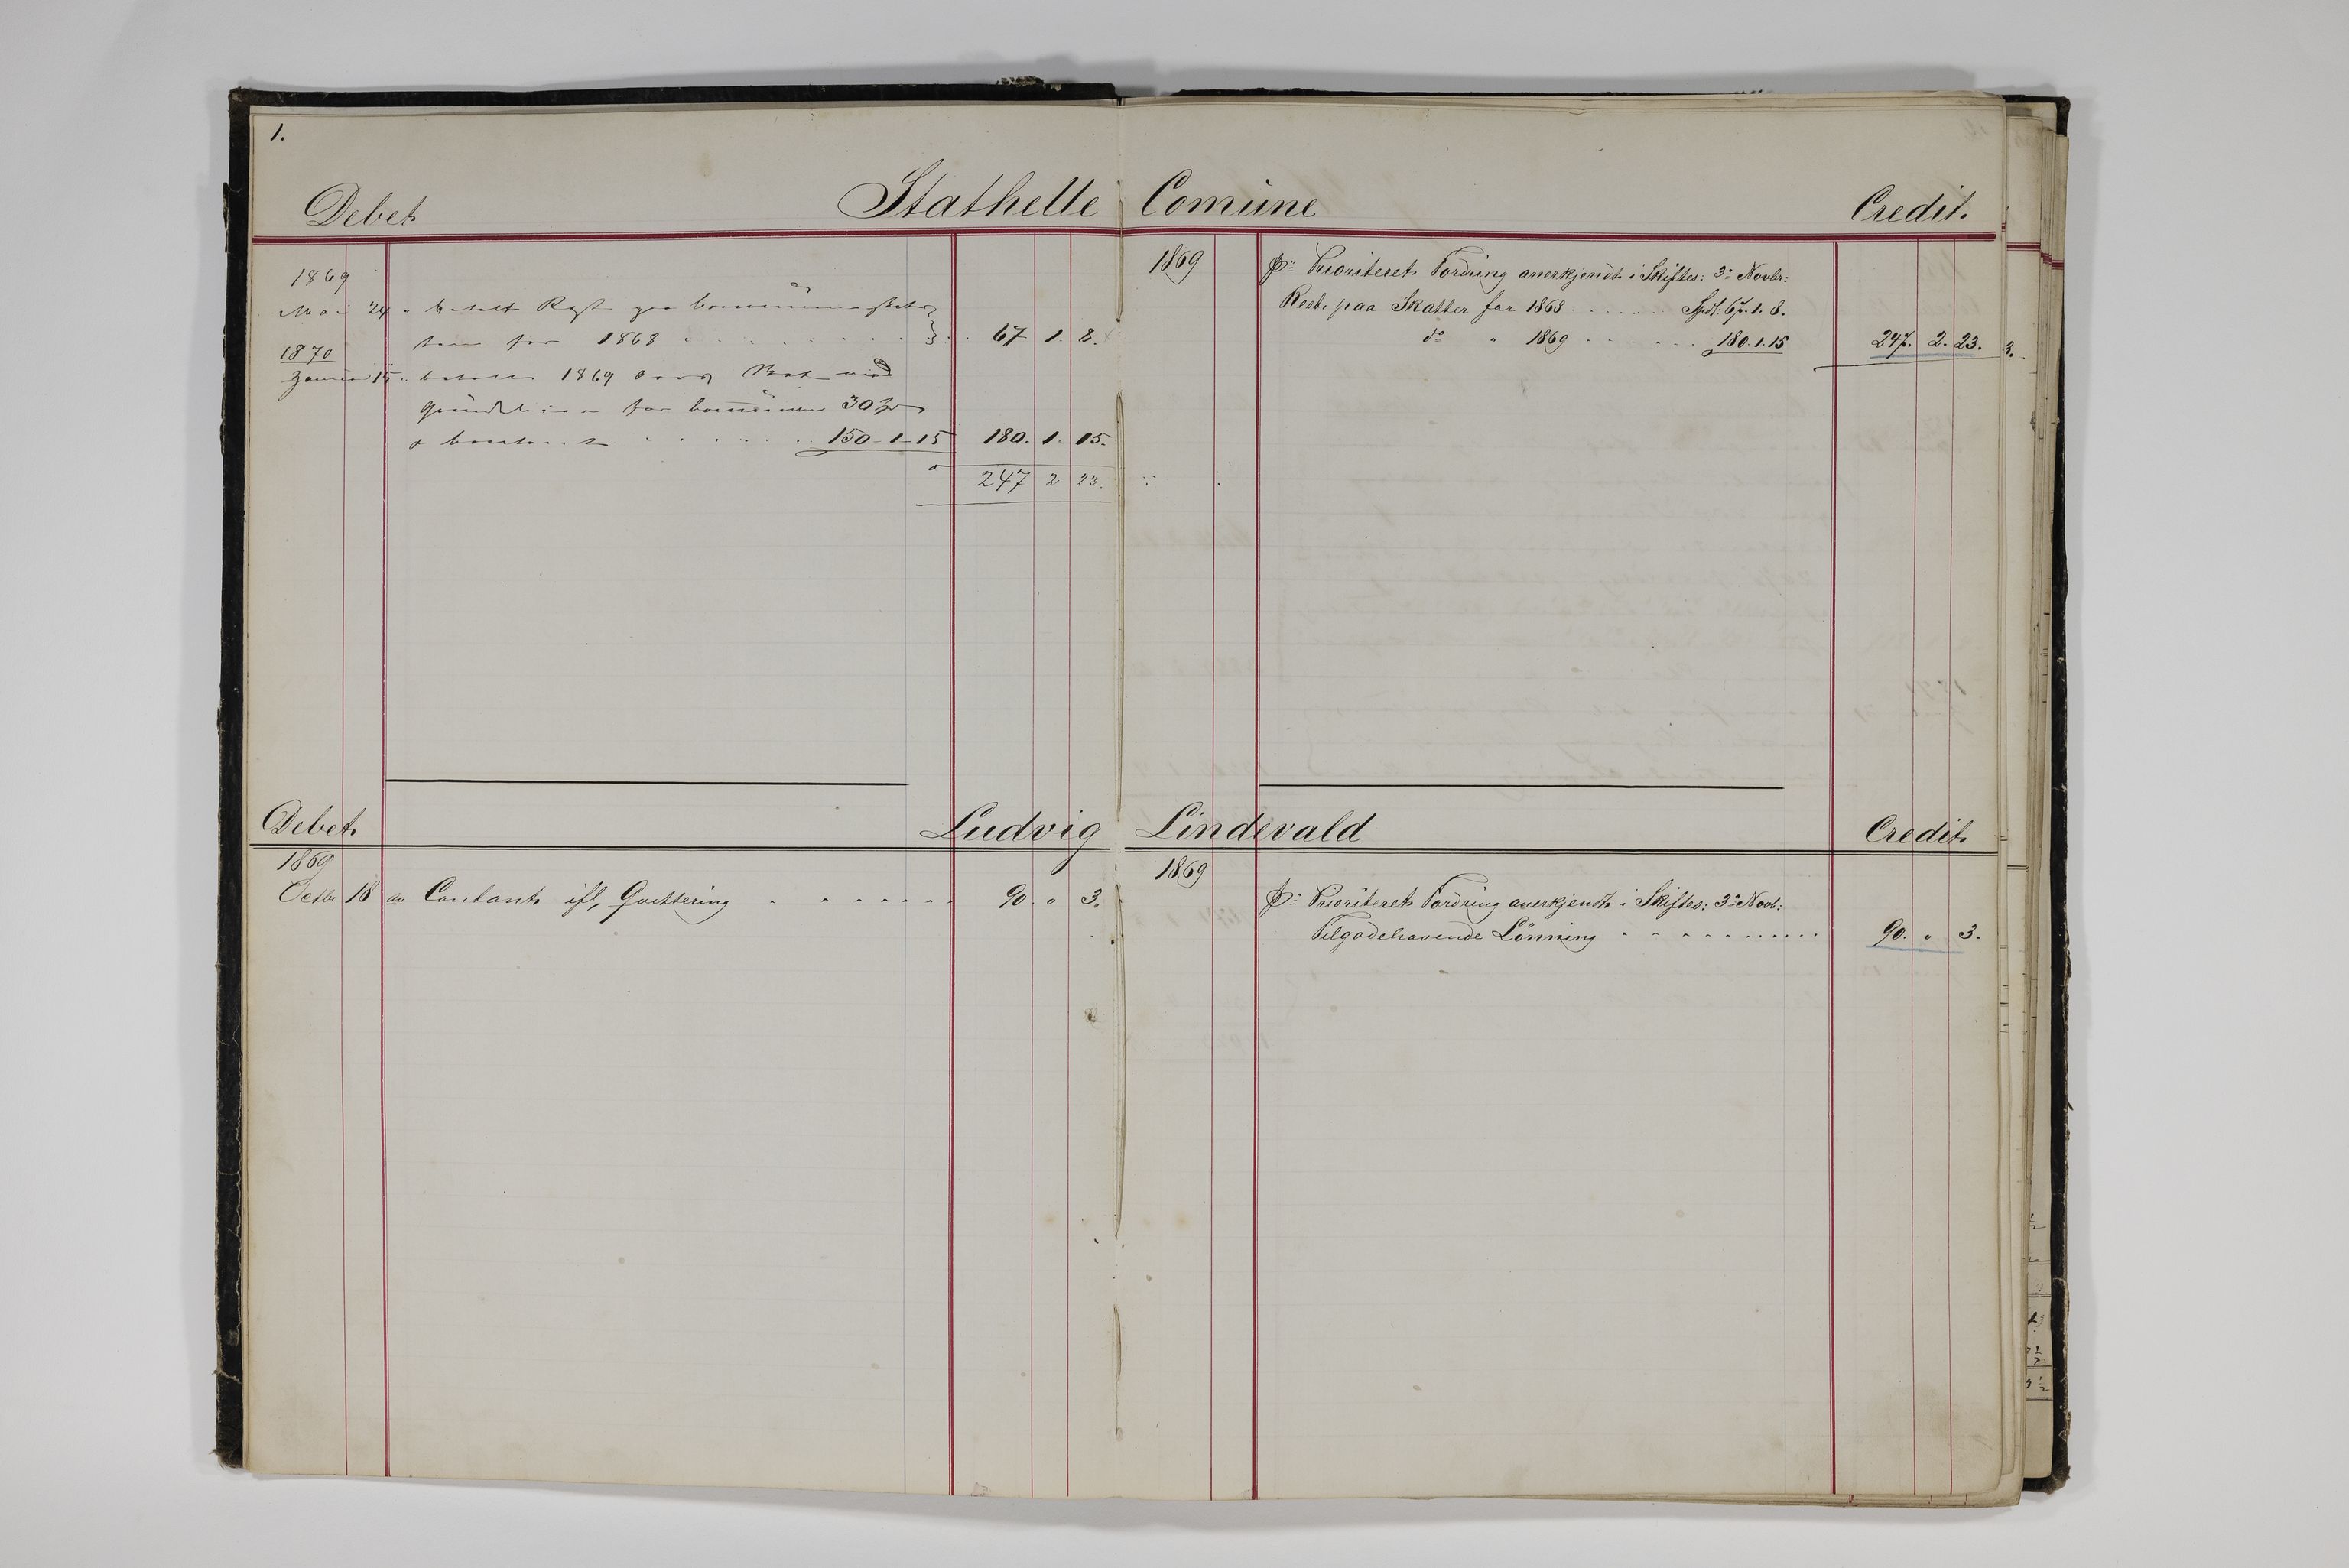 1.
Debet Stathelle Comüne Credit.
1869
Mai 24 " betalt Rest
for 1868 . . . . . . . . 67. 1. 8.
1870
Januar 15 " betalt 1869 Rest med
for 30
150-1-15 180. 1. 15.
247 2 23.
1869 pr: Prioritets Fordring anerkjendt i Skiftes: 3: Novbr:
Rest. paa Skatter for 1868 . . . . . . Spd: 67. 1. 8.
do " 1869 . . . . . . 180. 1. 15 247. 2. 23.
3.
Debet Ludvig Lindevald Credit.
1869
Octbr 18 an Contant ifl, Qvittering . . . . . . 90. " 3.
1869
pr: Prioritets Fordring anerkjendt i Skiftes: 3: Novb:
Tilgodehavende Lönning . . . . . . . . . . 90. " 3.